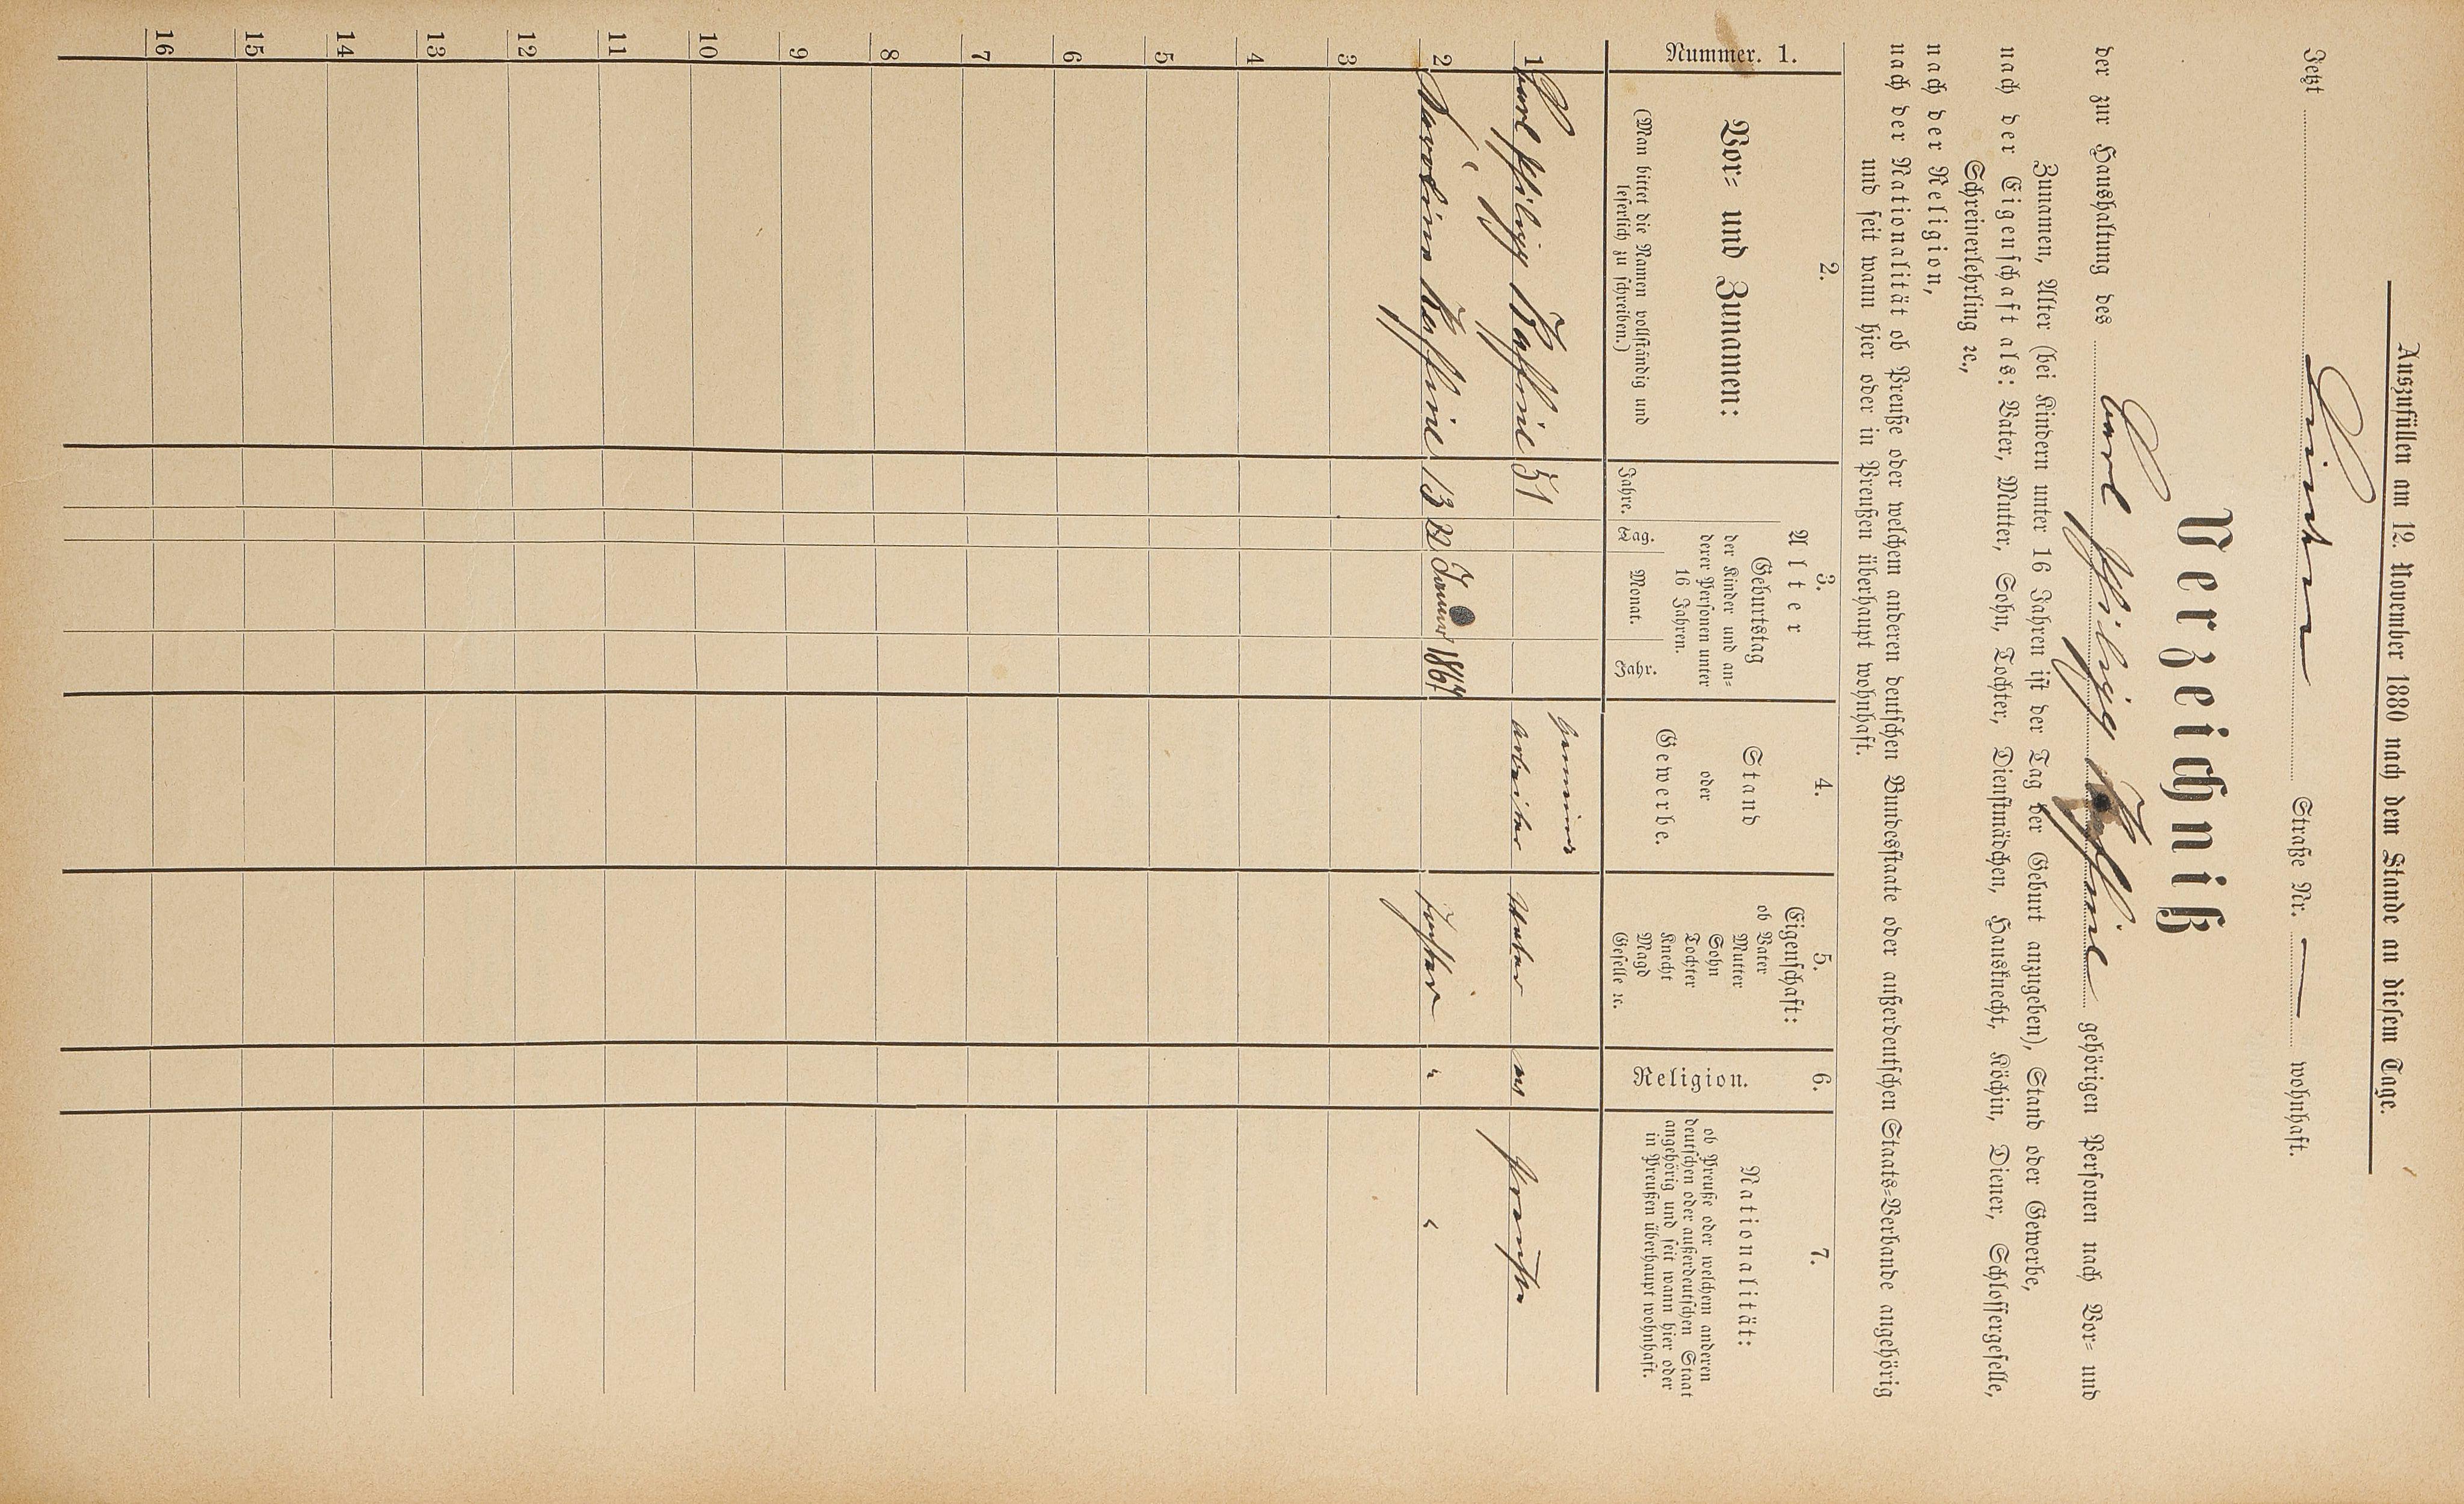 Auszufüllen am 12. November 1880 nach dem Stande an diesem Tage.
Jetzt Straße Nr. — wohnhaft.
Verzeichniß
der zur Haushaltung des Carl Philipp gehörigen Personen nach Vor- und
Zunamen, Alter (bei Kindern unter 16 Jahren ist der Tag der Geburt anzugeben), Stand oder Gewerbe,
nach der Eigenschaft als: Vater, Mutter, Sohn, Tochter, Dienstmädchen, Hausknecht, Köchin, Diener, Schlossergeselle,
Schreinerlehrling ꝛc.,
nach der Religion,
nach der Nationalität ob Preuße oder welchem anderen deutschen Bundesstaate oder außerdeutschen Staats-Verbande angehörig
und seit wann hier oder in Preußen überhaupt wohnhaft.
Nummer. 1.
2.
Vor- und Zunamen:
(Man bittet die Namen vollständig und
leserlich zu schreiben.)
3.
Alter
Jahre.
Geburtstag
der Kinder und an-
derer Personen unter
16 Jahren.
Tag.
Monat.
Jahr.
4.
Stand
oder
Gewerbe.
5.
Eigenschaft:
ob Vater
Mutter
Sohn
Tochter
Knecht
Magd
Geselle ꝛc.
6.
Religion.
7.
Nationalität:
ob Preuße oder welchem anderen
deutschen oder außerdeutschen Staat
angehörig und seit wann hier oder
in Preußen überhaupt wohnhaft.
1 Carl Philipp 51 arbeiter Vater Preuße
2 Karoline 13 22 Januar 1867 Tochter " "
3
4
5
6
7
8
9
10
11
12
13
14
15
16